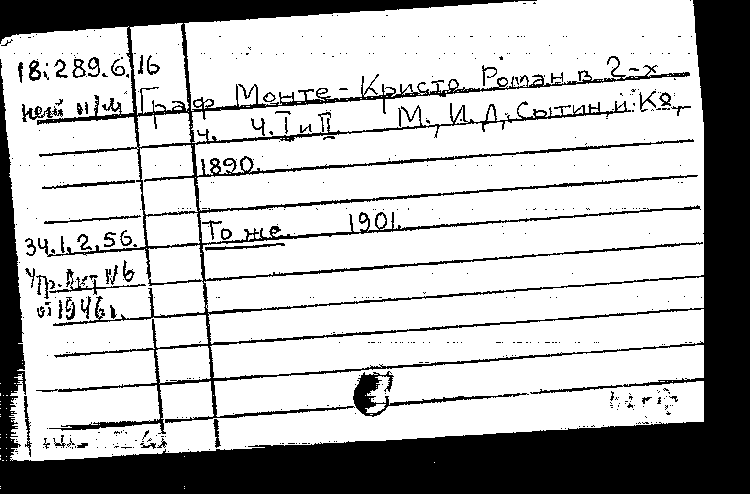 18.289.6.16
Граф Монте-Кристо. Роман в 2-х
ч. Ч. I и II М., И. Д. Сытин, и Ко,
1890.
34.1.2.56. То же. 1901.
Утр. Акт №6
от 1946 г.